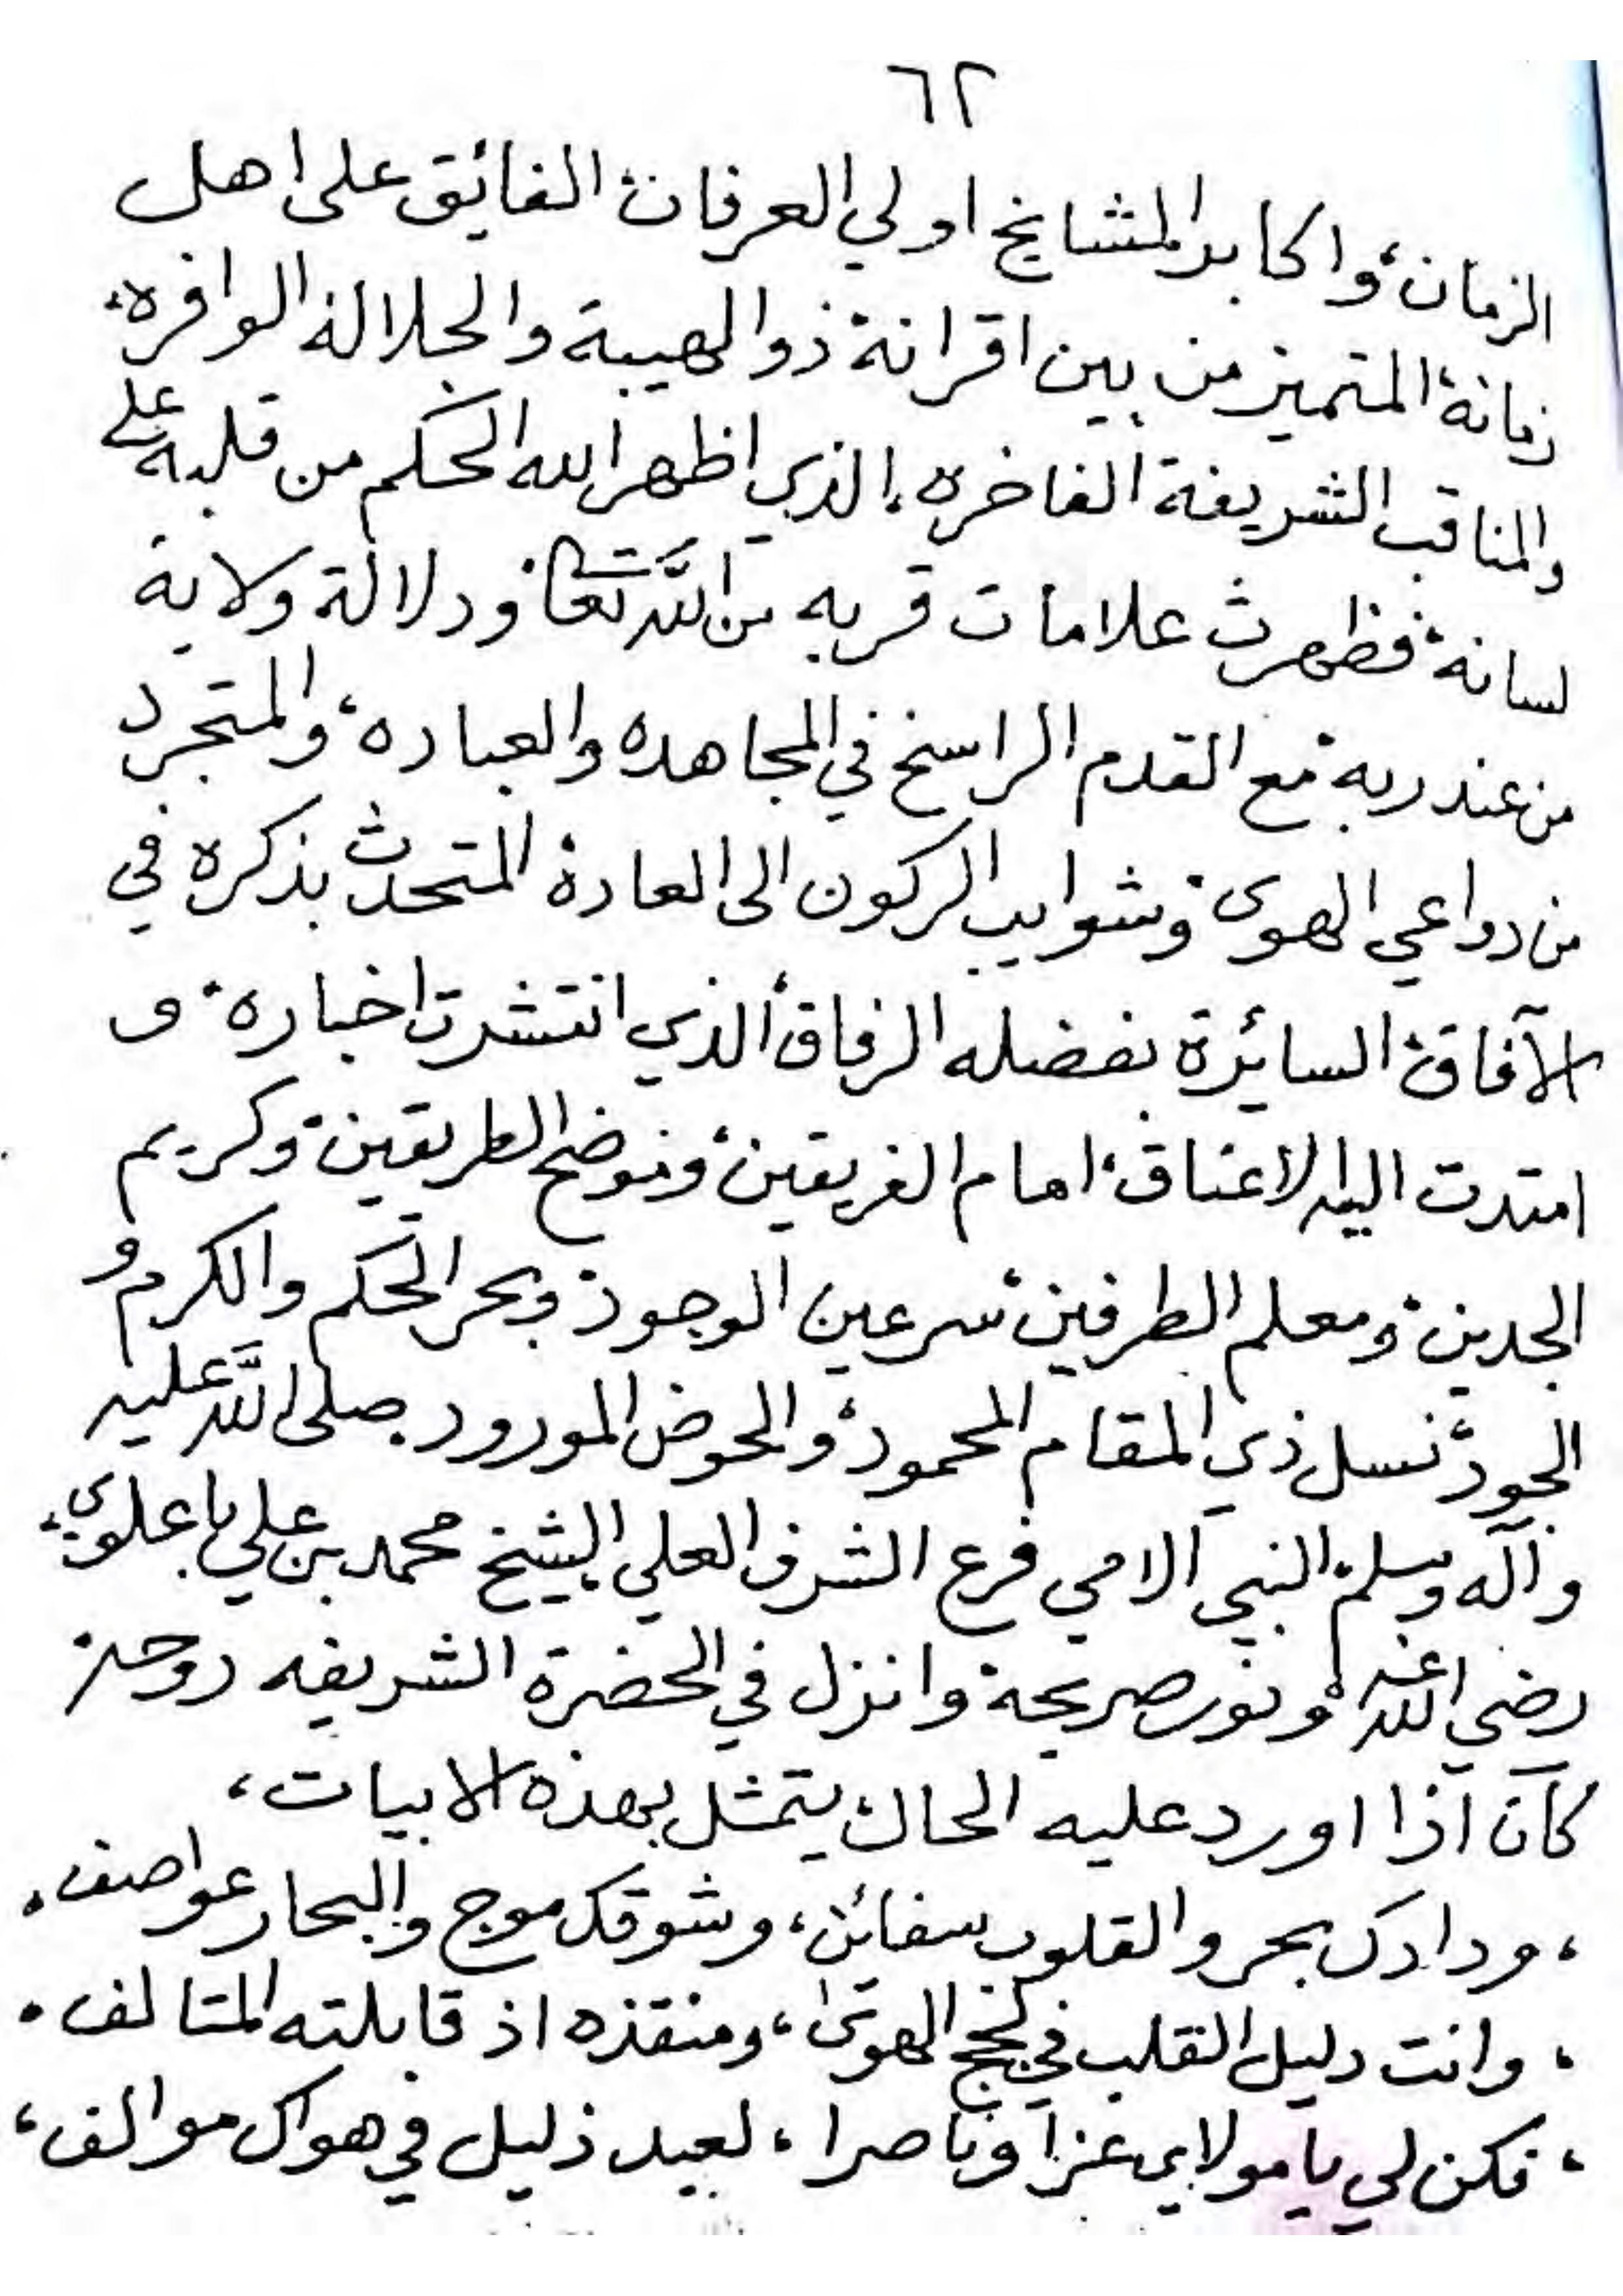 ٦٢
الزمان، واكابر المشايخ اولي العرفان، الفائق على اهل
زمانة، المتميز من بين اقرانة، ذو الهيبة والجلالة الوافره،
والمناقب الشريفة الفاخره، الذي اظهر الله الحكم من قلبه على
لسانة، فظهرت علامات قربه من الله تعالى، ودلالة ولاية
من عند ربه، مع القدم الراسخ في المجاهده والعباده، والمتجرد
من دواعي الهوى، وشوايب الركون الى العادة المتحدث بذكره في
الآفاق، السائرة بفضله الرفاق، الذي انتشرت اخباره، و
امتدت اليه الاعناق، امام الفريقين، وموضح الطريقين، وكريم
الجدين، ومعلم الطرفين، سر عين الوجود، وبحر الحكم والكرم و
الجود، نسل ذي المقام المحمود، والحوض المورود صلى الله عليه
وآله وسلم، النبي الامي فرع الشرف العلي الشيخ محمد بن علي باعلوي،
رضي الله عنه، ونور ضريحة وانزل في الحضرة الشريفه روحة،
كان اذا اورد عليه الحال، يتمثل بهذه الابيات،
، ودادك بحر والقلوب سفائن، وشوقك موج والبحار عواصف،
، وانت دليل القلب في لجج الهوى، ومنقذه اذ قابلته المتالف،
، فكن لي يا مولاي عزا وناصرا، لعبد ذليل في هواك موالف،